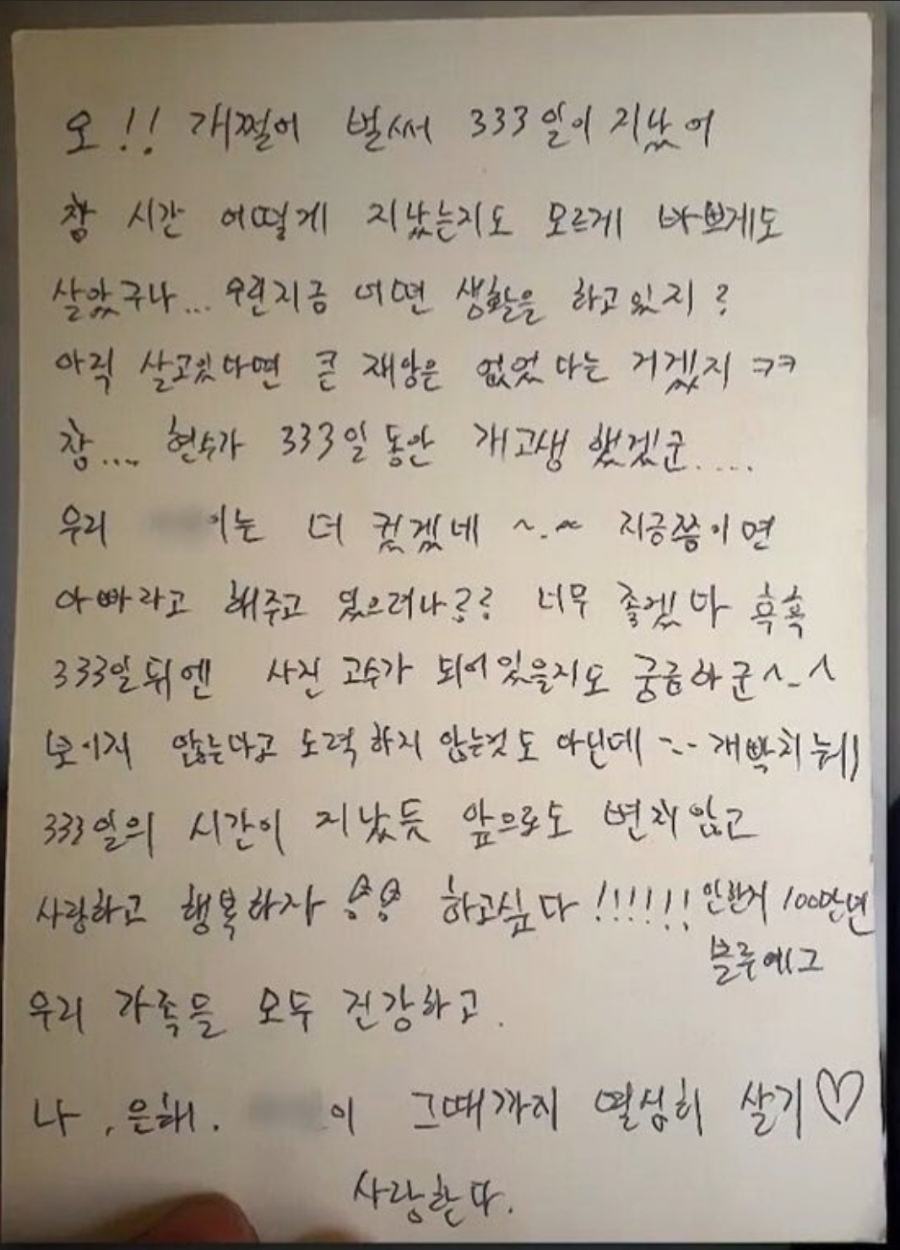 오!! 개쩔어 벌써 333일이 지났어
참 시간 어떻게 지났는지도 모르게 바쁘게도
살았구나... 우린지금 어떤 생활을 하고있지?
아직 살고있다면 큰 재앙은 없었다는 거겠지 ㅋㅋ
참.... 현수가 333일동안 개고생했겠군.....
우리 이는 더 컸겠네 ~.~ 지금쯤이면
아빠라고 해주고 있으려나?? 너무 좋겠다 흑흑
333일뒤엔 사진 고수가 되어있을지도 궁금하군^-^
보이지 않는다고 노력하지 않는것도 아닌데 개빡치뉘
333일의 시간이 지났듯 앞으로도 변치않고
사랑하고 행복하자 하고싶다!!!!!! 인한지 100만년
블루에그
우리 가족들 모두 건강하고.
나, 은해. 이 그때까지 열심히 살기♡
사랑한다.